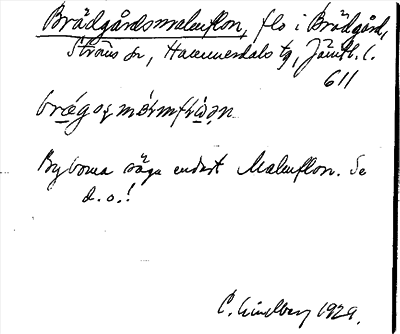 Brädgårdsmalmflon, flo i Brädgård,
Ströms sn, Hammerdals tg, Jämtl. l.
611
Byborna säga endast Malmflon. Se
d. o.!
C. Lindberg 1929.